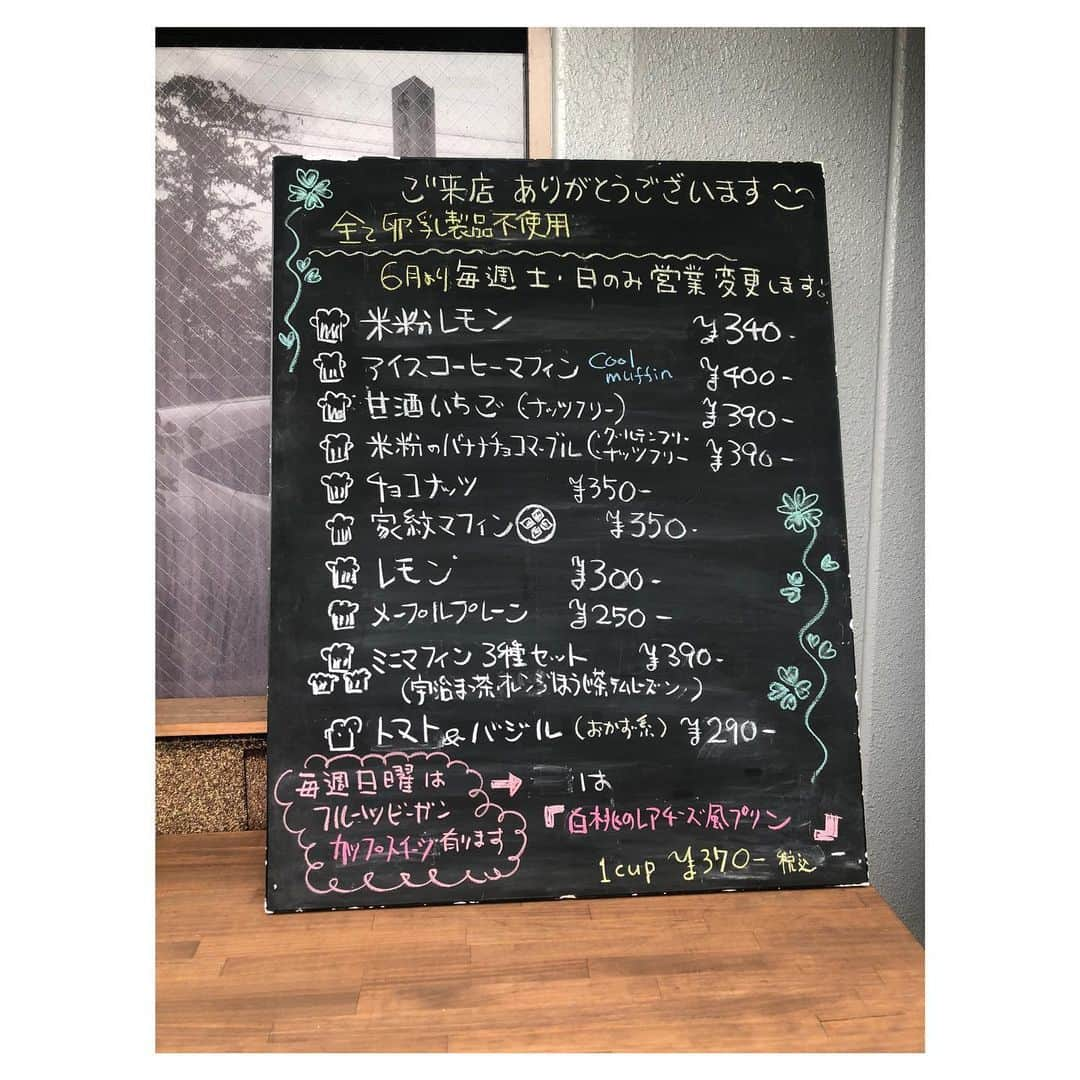 ご来店 ありがとうございます
全て卵・乳製品不使用
6月より毎週土・日のみ営業変更します。
米粉レモン ¥340-
アイスコーヒーマフィン Cool muffin ¥400-
甘酒いちご(ナッツフリー) ¥390-
米粉のバナナチョコマーブル(・グルテンフリー ・ナッツフリー ¥390-
チョコナッツ ¥350-
家紋マフィン ¥350-
レモン ¥300-
メープルプレーン ¥250-
ミニマフィン3種セット ¥390-
(宇治まっ茶・オレンジほうじ茶・ラムレーズン)
トマト&バジル(おかず系) ¥290-
毎週日曜は
フルーツビーガン
カップスイーツ有ります
→ は
『白桃のレアチーズ風プリン』
1cup ¥370- 税込